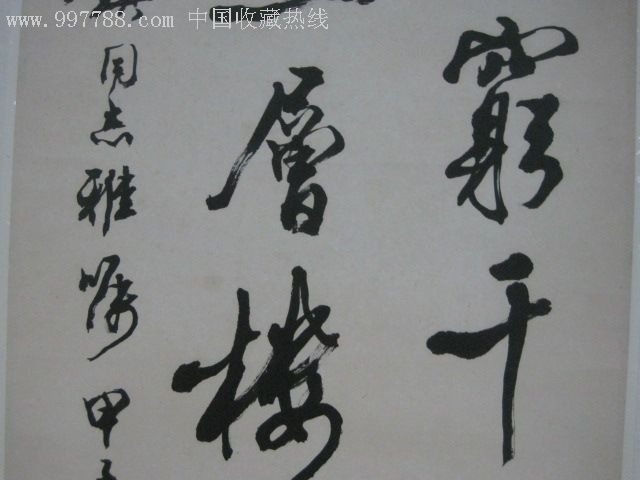 www.997788.com 中国收藏热线
窮千
層樓
同志雅嘱甲子